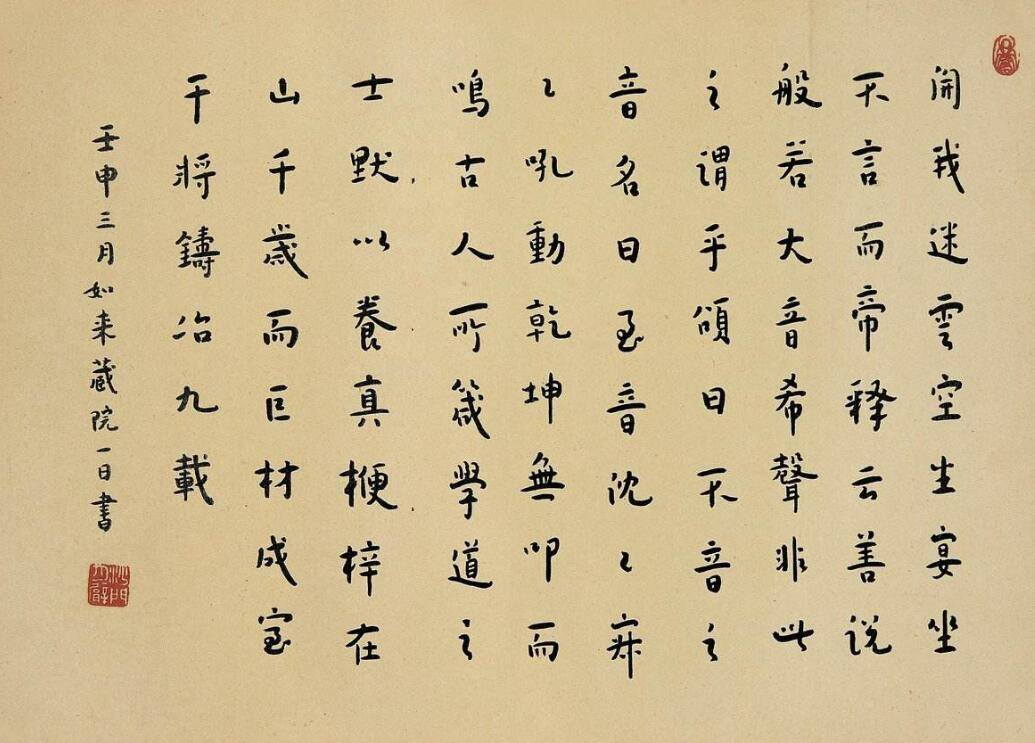 開我迷雲空生宴坐
不言而帝釋云善説
般若大音希聲非此
之謂乎頌曰不音之
音名曰至音沈〻寂
〻吼動乾坤無叩而
鳴古人所箴學道之
士默以養真楩梓在
山千歳而巨材成室
干將鑄冶九載
壬申三月如来蔵院一日書